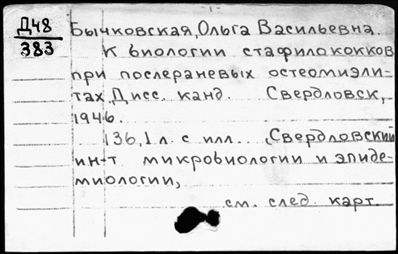 Д48
383
Бычковская, Ольга Васильевна.
К биологии стафилококков
при послераневых остеомиэли-
тах Дисс. канд. Свердловск,
1946.
136,1 л. с илл. (Свердловский
ин-т. микробиологии и эпиде-
миологии,
см. след. карт.